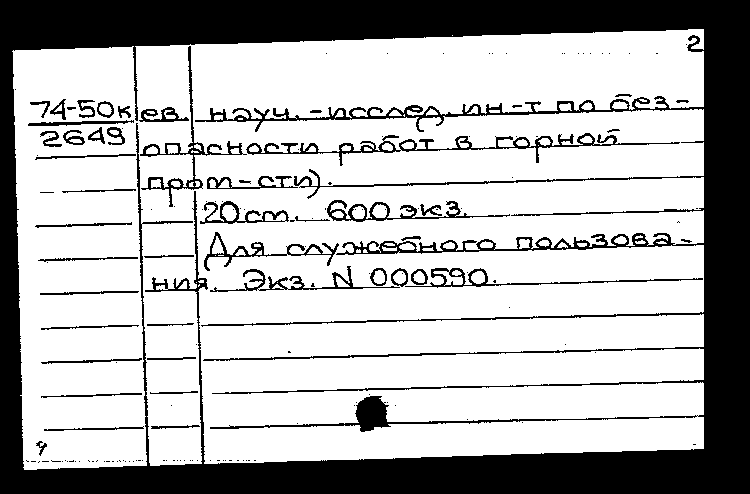 2
74-50к ев. науч.-исслед. ин-т по без-
2649 опасности работ в горной
пром-сти).
20 cm. 600 экз.
Для служебного пользова-
ния. Экз. N 000590.